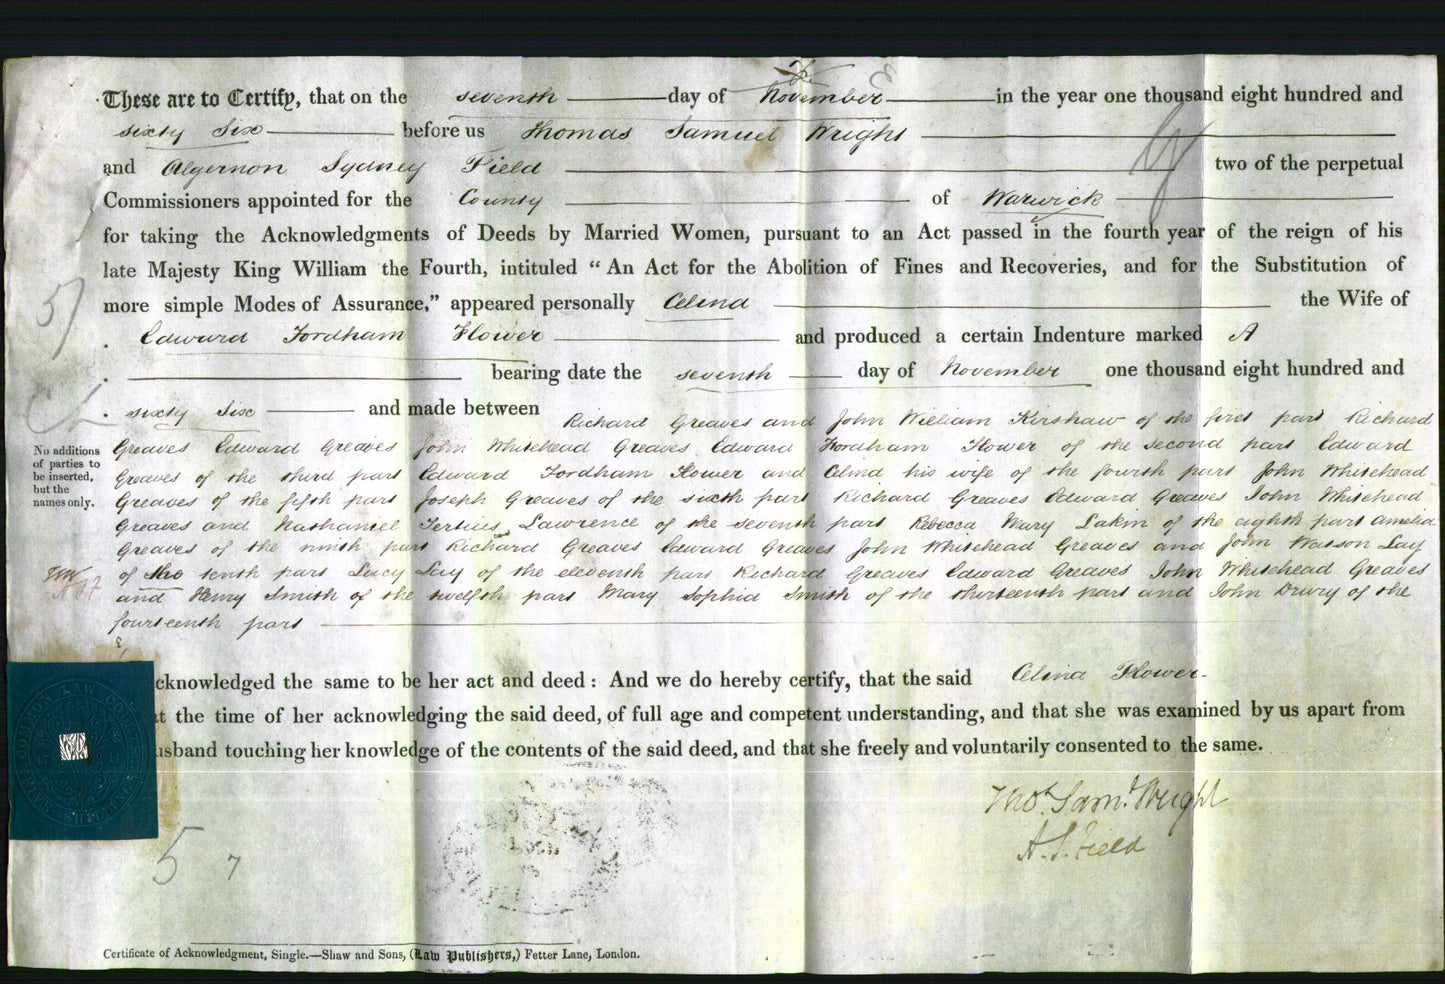 These are to Certify, that on the seventh day of November in the year one thousand eight hundred and
sixty six before us Thomas Samuel Wright
and Algernon Sydney Field two of the perpetual
Commissioners appointed for the County of Warwick
for taking the Acknowledgments of Deeds by Married Women, pursuant to an Act passed in the fourth year of the reign of his
late Majesty King William the Fourth, intituled "An Act for the Abolition of Fines and Recoveries, and for the Substitution of
more simple Modes of Assurance," appeared personally Celina the Wife of
Edward Fordham Flower and produced a certain Indenture marked A
bearing date the seventh day of November one thousand eight hundred and
sixty six and made between
Richard Greaves and John William Kirshaw of the first part Richard
Greaves Edward Greaves John Whitehead Greaves Edward Fordham Flower of the second part Edward
Greaves of the third part Edward Fordham Flower and Celina his wife of the fourth part John Whitehead
Greaves of the fifth part Joseph Greaves of the sixth part Richard Greaves Edward Greaves John Whitehead
Greaves and Nathaniel Tertius Lawrence of the seventh part Rebecca Mary Lakin of the eighth part Amelia
Greaves of the ninth part Richard Greaves Edward Greaves John Whitehead Greaves and John Watson Lay
of the tenth part Lucy Lay of the eleventh part Richard Greaves Edward Greaves John Whitehead Greaves
and Henry Smith of the twelfth part Mary Sophia Smith of the thirteenth part and John Drury of the
fourteenth part
No additions
of parties to
be inserted,
but the
names only.
cknowledged the same to be her act and deed: And we do hereby certify, that the said Celina Flower
t the time of her acknowledging the said deed, of full age and competent understanding, and that she was examined by us apart from
usband touching her knowledge of the contents of the said deed, and that she freely and voluntarily consented to the same.
Thos. Saml. Wright
A. S. Field
57
5 7
Certificate of Acknowledgment, Single.—Shaw and Sons, (Law Publishers,) Fetter Lane, London.